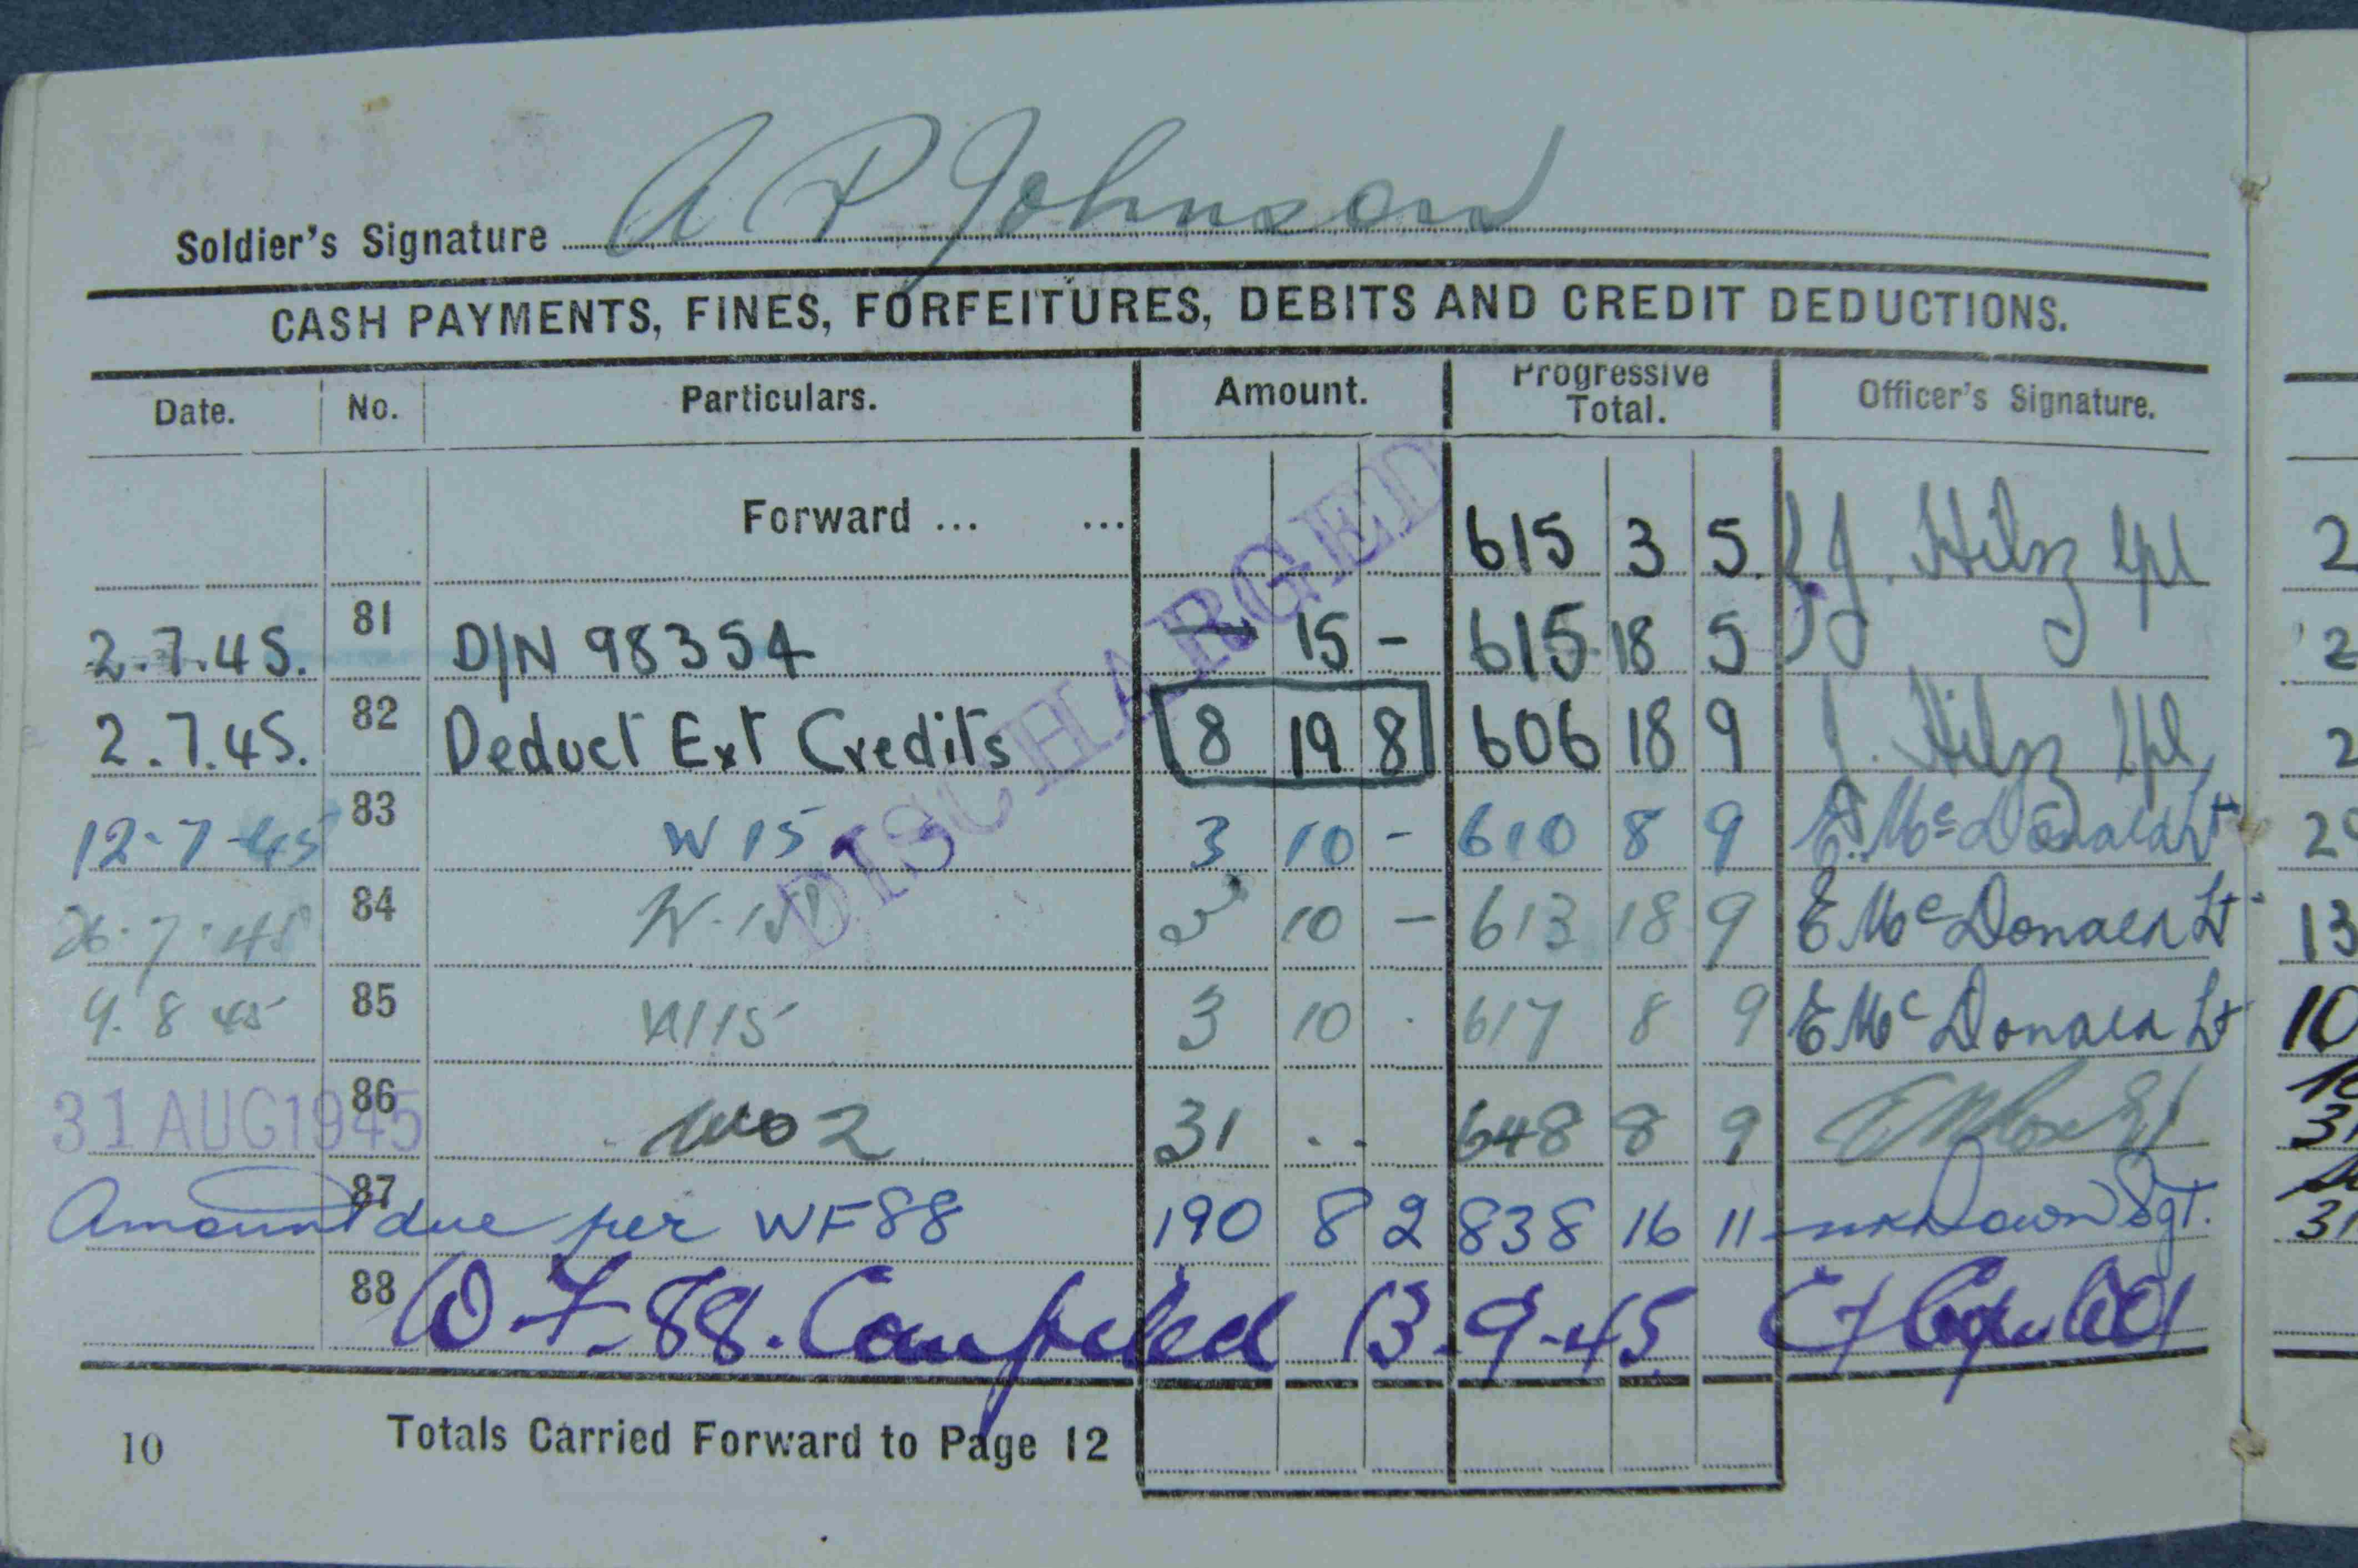 Soldier's Signature A P Johnson
CASH PAYMENTS, FINES, FORFEITURES, DEBITS AND CREDIT DEDUCTIONS.
Date. No. Particulars. Amount. Progressive Total. Officer's Signature.
Forward ... ... 615 3 5. J. Hilz Cpl
2.7.45. 81 D/N 98354 15 - 615 18 5
2.7.45. 82 Deduct Ext Credits 8 19 8 606 18 9 J. Hilz Cpl
12-7-45 83 W 15 3 10 - 610 8 9 E. McDonald Lt
26.7.45 84 W.15 3 10 - 613 18 9 E McDonald Lt
9.8 45 85 W15 3 10 . 617 8 9 E McDonald Lt
31 AUG 1945 86 2 31 . . 648 8 9
87 Amount due per WF88 190 8 2 838 16 11 Sgt.
88 W.F.88. 13-9-45
DISCHARGED
10 Totals Carried Forward to Page 12
2
2
2
13
10
31